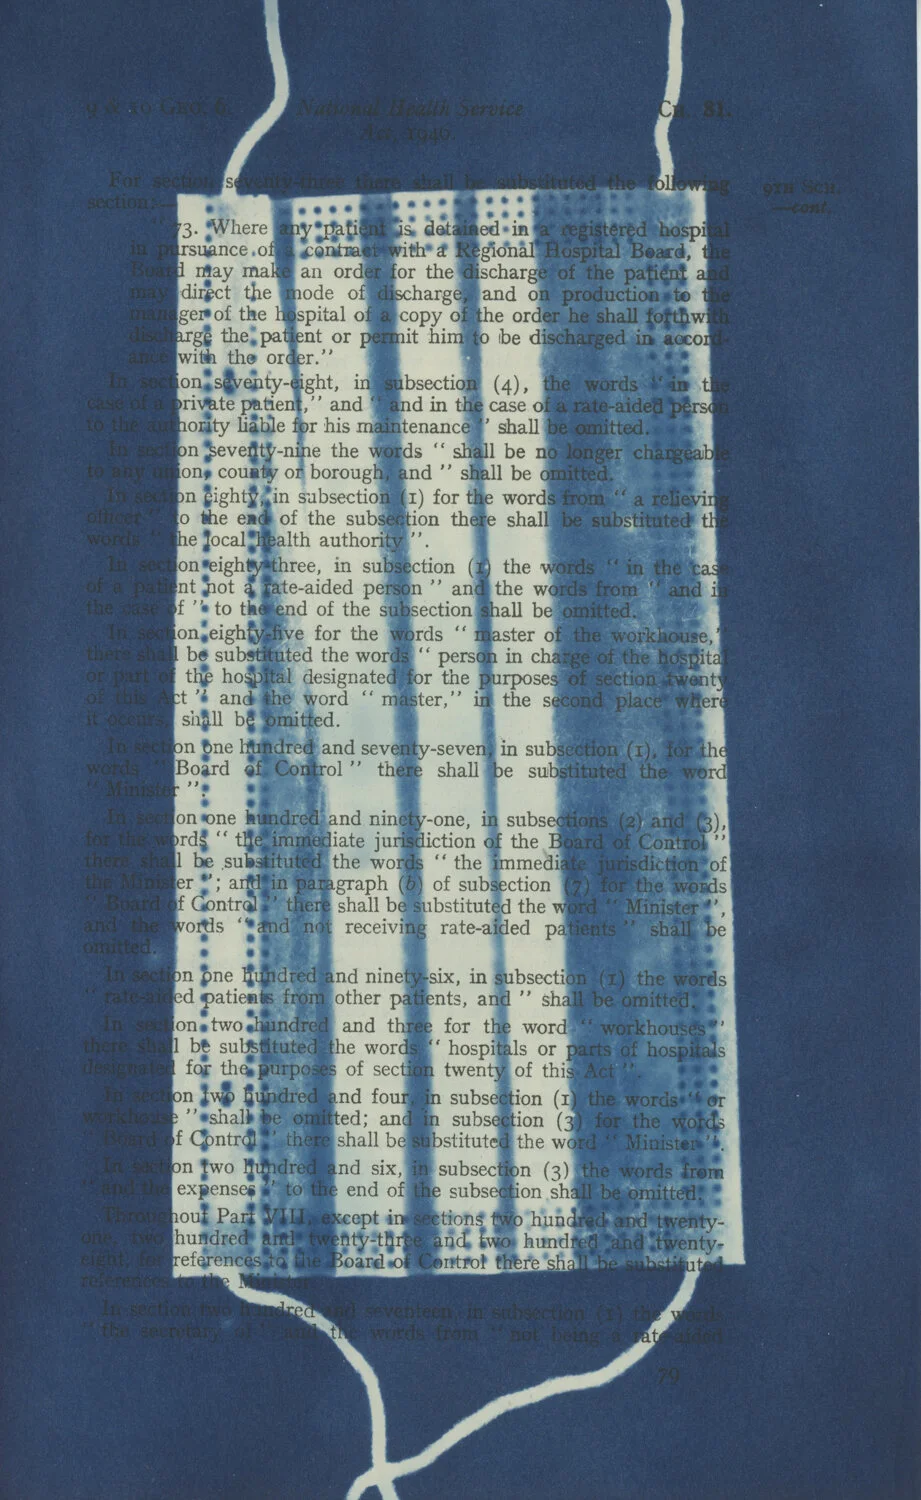 9 & 10 GEO. 6. National Health Service CH. 81.
Act, 1946.
For section seventy-three there shall be substituted the following 9TH SCH.
section:— —cont.
"73. Where any patient is detained in a registered hospital
in pursuance of a contract with a Regional Hospital Board, the
Board may make an order for the discharge of the patient and
may direct the mode of discharge, and on production to the
manager of the hospital of a copy of the order he shall forthwith
discharge the patient or permit him to be discharged in accord-
ance with the order."
In section seventy-eight, in subsection (4), the words " in the
case of a private patient," and " and in the case of a rate-aided person
to the authority liable for his maintenance " shall be omitted.
In section seventy-nine the words " shall be no longer chargeable
to any union, county or borough, and " shall be omitted.
In section eighty, in subsection (1) for the words from " a relieving
officer " to the end of the subsection there shall be substituted the
words " the local health authority ".
In section eighty-three, in subsection (1) the words " in the case
of a patient not a rate-aided person " and the words from " and in
the case of " to the end of the subsection shall be omitted.
In section eighty-five for the words " master of the workhouse,"
there shall be substituted the words " person in charge of the hospital
or part of the hospital designated for the purposes of section twenty
of this Act " and the word " master," in the second place where
it occurs, shall be omitted.
In section one hundred and seventy-seven, in subsection (1), for the
words " Board of Control " there shall be substituted the word
" Minister ".
In section one hundred and ninety-one, in subsections (2) and (3),
for the words " the immediate jurisdiction of the Board of Control "
there shall be substituted the words " the immediate jurisdiction of
the Minister "; and in paragraph (b) of subsection (7) for the words
" Board of Control " there shall be substituted the word " Minister ",
and the words " and not receiving rate-aided patients " shall be
omitted.
In section one hundred and ninety-six, in subsection (1) the words
" rate-aided patients from other patients, and " shall be omitted.
In section two hundred and three for the word " workhouses "
there shall be substituted the words " hospitals or parts of hospitals
designated for the purposes of section twenty of this Act ".
In section two hundred and four, in subsection (1) the words " or
workhouse " shall be omitted; and in subsection (3) for the words
" Board of Control " there shall be substituted the word " Minister ".
In section two hundred and six, in subsection (3) the words from
" and the expenses " to the end of the subsection shall be omitted.
Throughout Part VIII, except in sections two hundred and twenty-
one, two hundred and twenty-three and two hundred and twenty-
eight, for references to the Board of Control there shall be substituted
references to the Minister.
In section two hundred and seventeen, in subsection (1) the words
" the secretary of " and the words from " not being a rate-aided
79